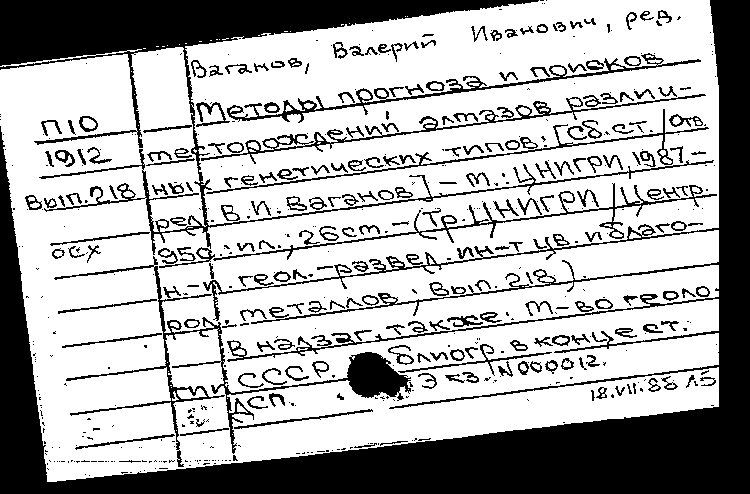 Ваганов, Валерий Иванович, ред.
П10 Методы прогноза и поисков
1912 месторождений алмазов различ-
Вып.218 ных генетических типов: [Сб.ст. / Отв.
ред. В.И. Ваганов] - М.: ЦНИГРИ, 1987.-
осх 95с.: ил.; 26см. - (Тр. ЦНИГРИ / Центр.
н.-и. геол.-развед. ин-т цв. и благо-
род. металлов; Вып. 218).
В надзаг. также: М-во геоло-
гии СССР. блиогр. в конце ст.
ДСП. Экз. N000012.
18.VII.88 15